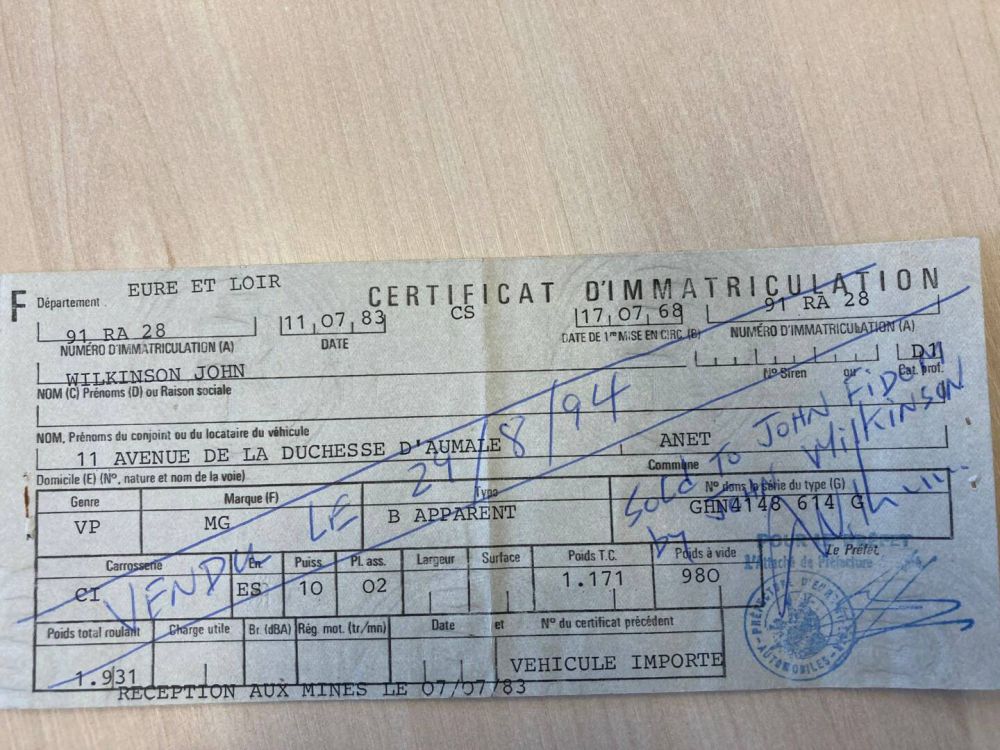 F Département EURE ET LOIR CERTIFICAT D'IMMATRICULATION
91 RA 28 11 07 83 CS 17 07 68 91 RA 28
NUMÉRO D'IMMATRICULATION (A) DATE DATE DE 1re MISE EN CIRC. (B) NUMÉRO D'IMMATRICULATION (A)
WILKINSON JOHN D1
NOM (C) Prénoms (D) ou Raison sociale No Siren ou Cat. prof.
NOM, Prénoms du conjoint ou du locataire du véhicule
11 AVENUE DE LA DUCHESSE D'AUMALE ANET
Domicile (E) (No, nature et nom de la voie) Commune
Genre Marque (F) Type No dans la série du type (G)
VP MG B APPARENT GHN4148 614 G
Carrosserie En Puiss Pl. ass. Largeur Surface Poids T.C. Poids à vide
CI ES 10 02 1.171 980
Poids total roulant Charge utile Br. (dBA) Rég. mot. (tr/mn) Date et No du certificat précédent
1.931 VEHICULE IMPORTE
RECEPTION AUX MINES LE 07/07/83
Le Préfet,
POUR LE PREFET
L'Attaché de Préfecture
PRÉFECTURE D'EURE
AUTOMOBILES
VENDU LE 29/8/94
Sold TO JOHN
by JOHN WILKINSON